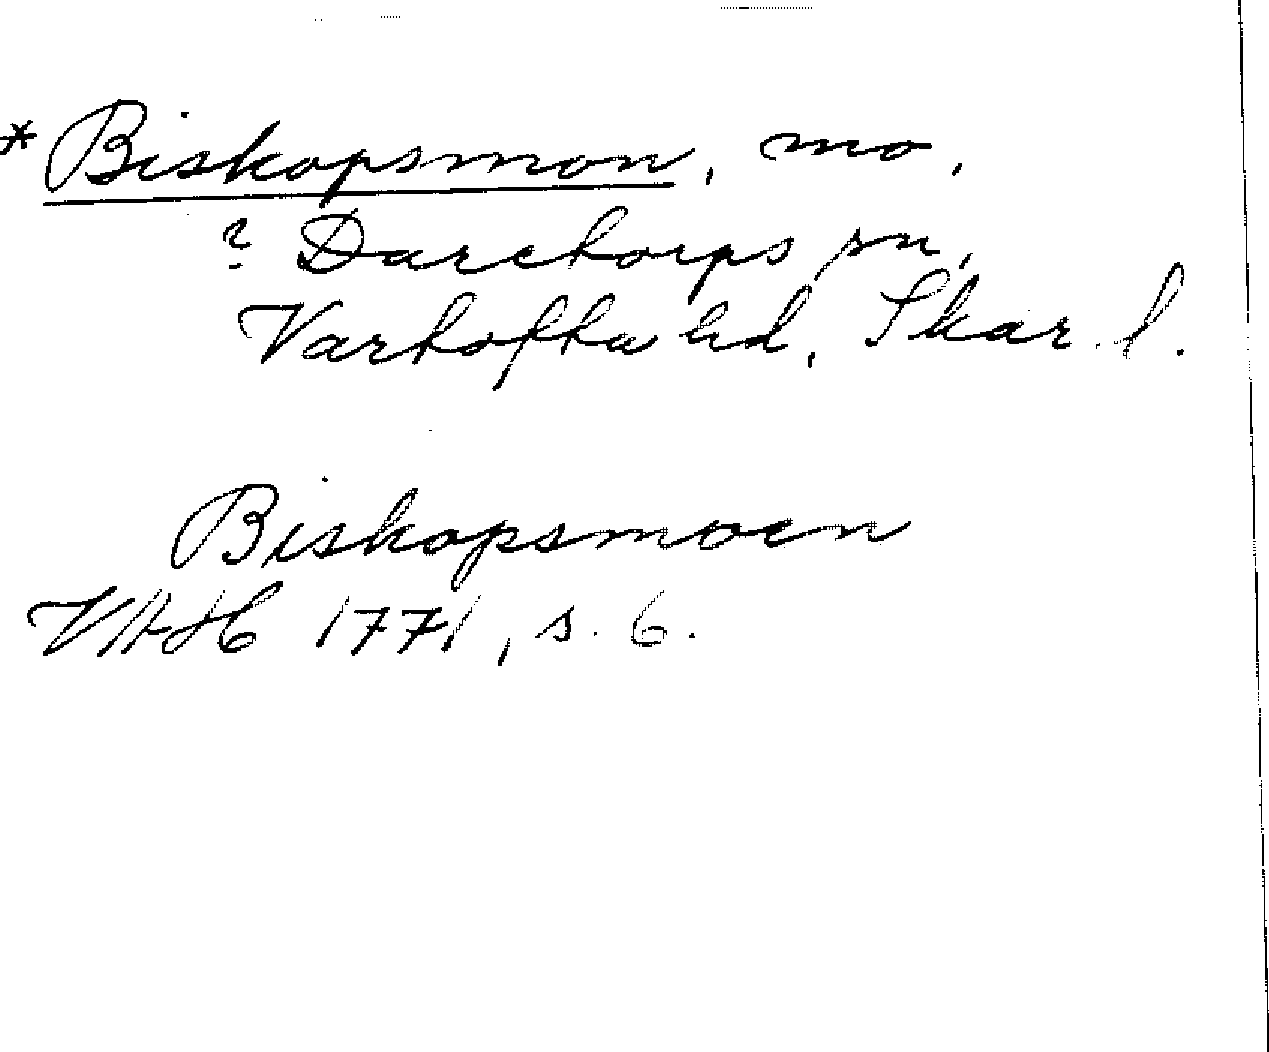 * Biskopsmon, mo,
? Daretorps sn,
Vartofta hd, Skar. l.
Biskopsmoen
VAH 1771, s. 6.